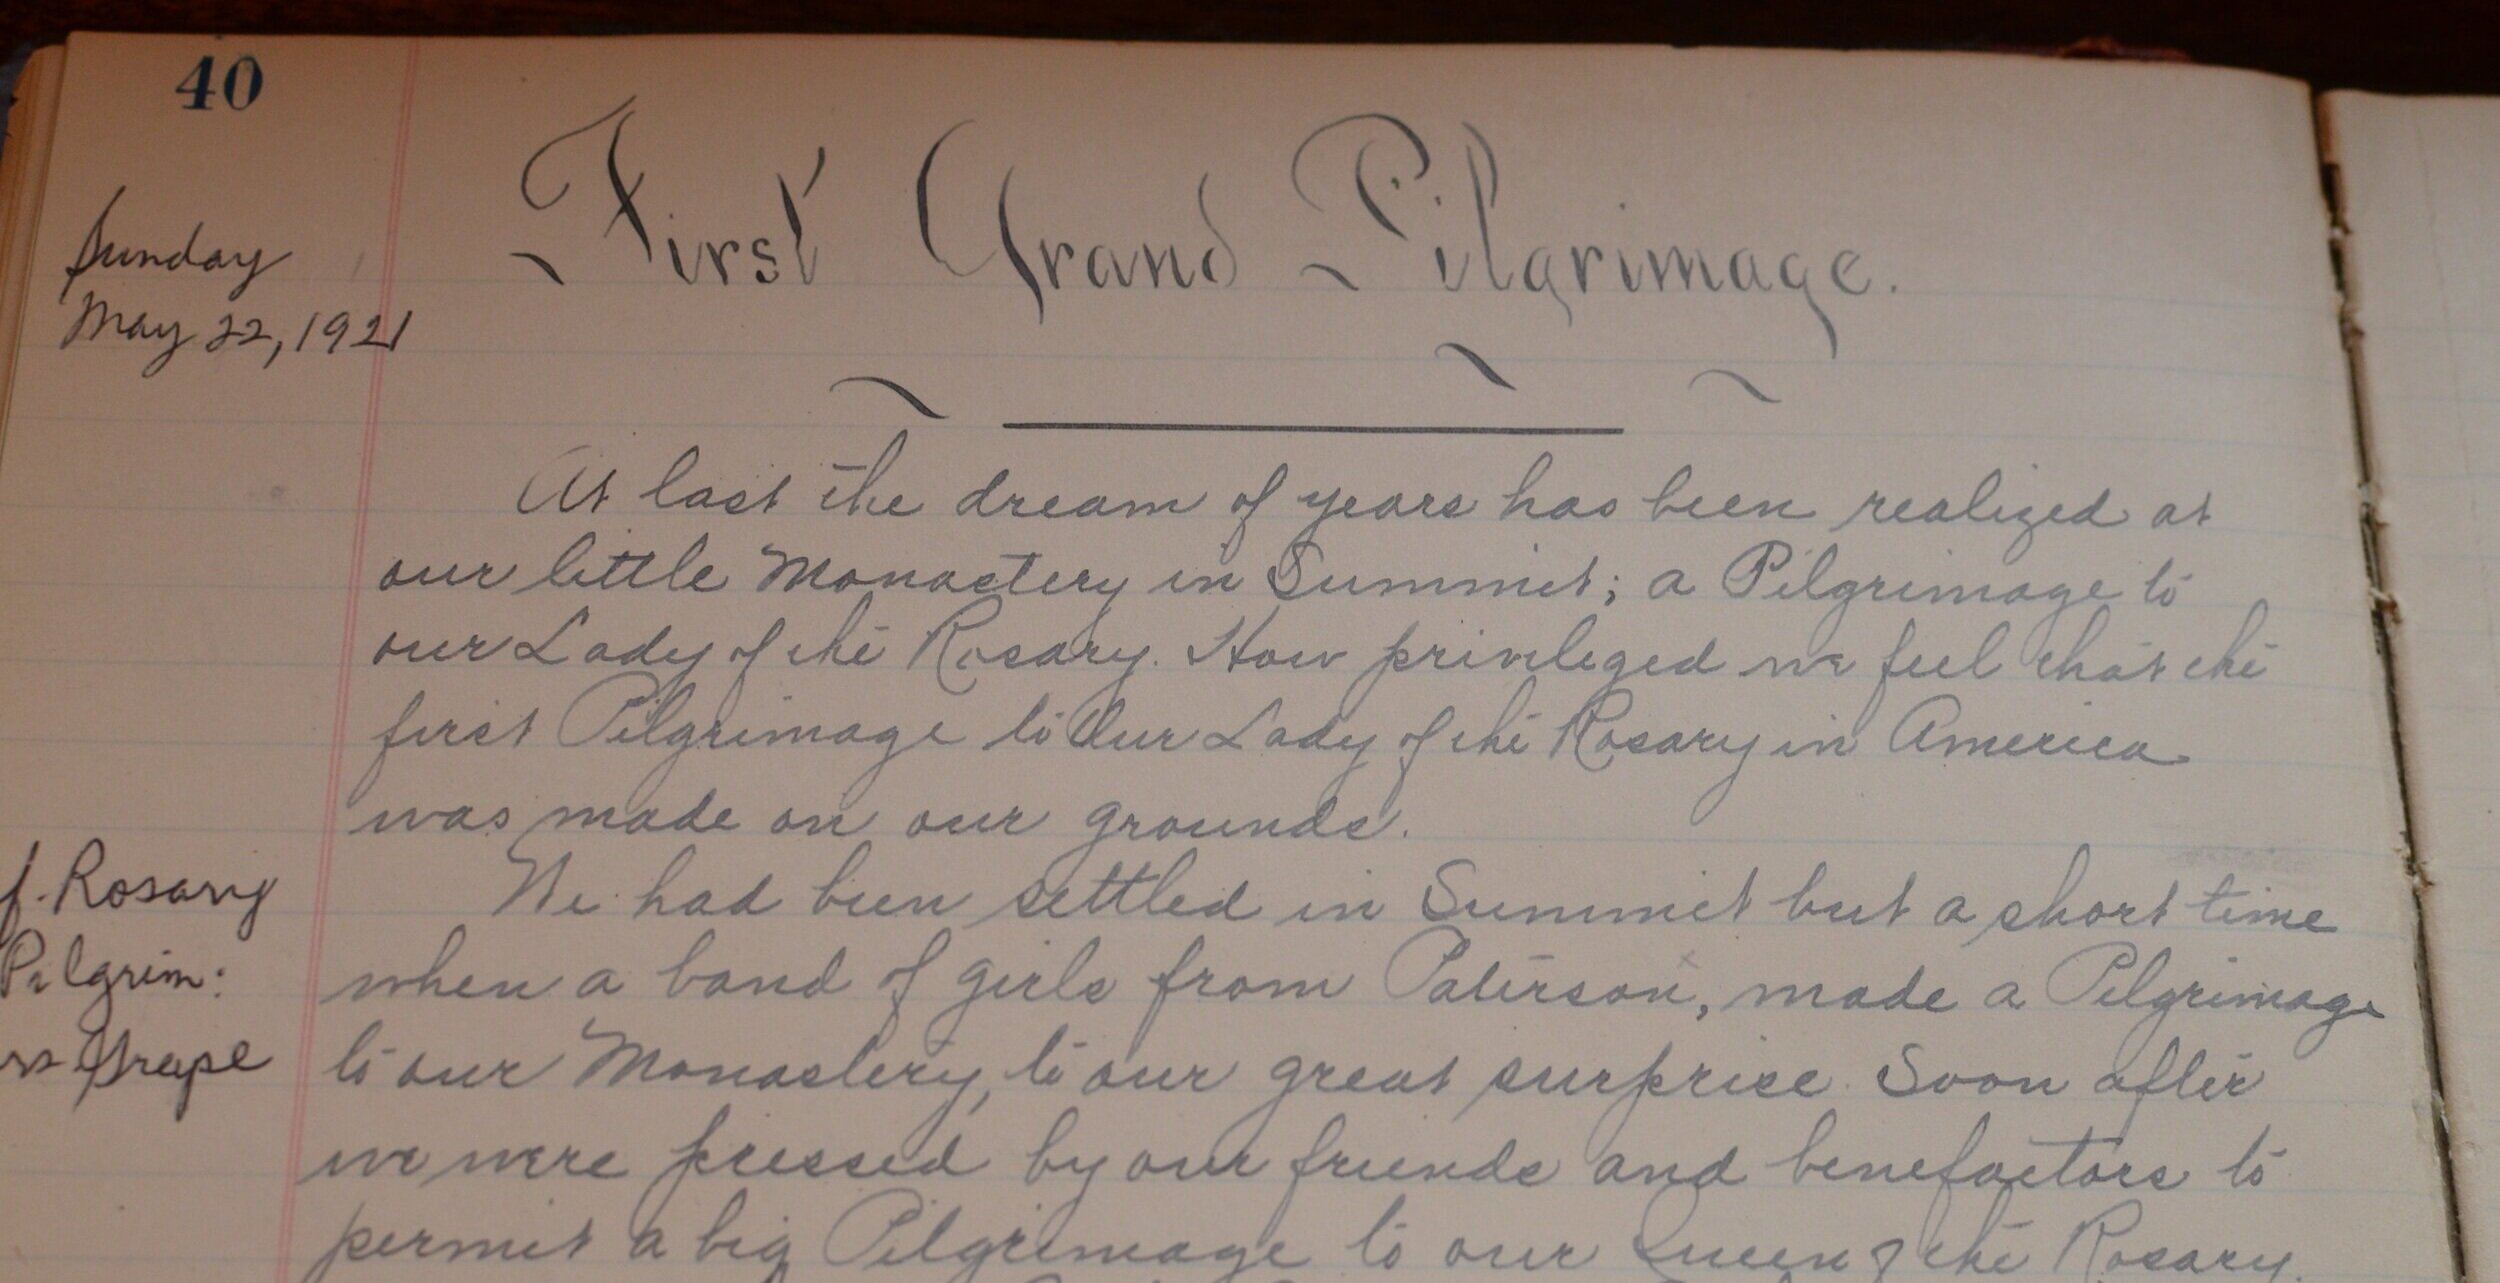 40
First Grand Pilgrimage.
Sunday
May 22, 1921
At last the dream of years has been realized at
our little Monastery in Summit; a Pilgrimage to
our Lady of the Rosary. How privileged we feel that the
first Pilgrimage to Our Lady of the Rosary in America
was made on our grounds.
We had been settled in Summit but a short time
when a band of girls from Paterson, made a Pilgrimage
to our Monastery, to our great surprise. Soon after
we were pressed by our friends and benefactors to
permit a big Pilgrimage to our Queen of the Rosary.
f. Rosary
Pilgrim: